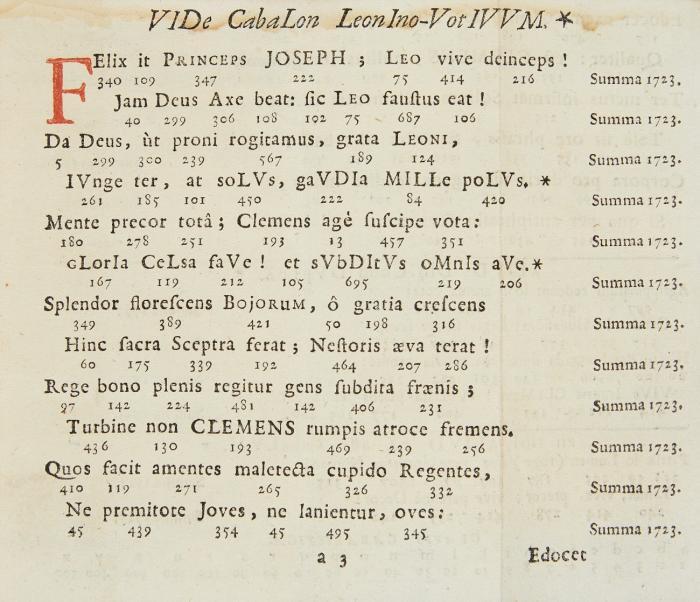 VIDe CabaLon LeonIno-VotIVVM. *
FElix it PRINCEPS JOSEPH ; LEO vive deinceps !
340 109 347 222 75 414 216 Summa 1723.
Jam Deus Axe beat: ſic LEO fauſtus eat !
40 299 306 108 192 75 687 106 Summa 1723.
Da Deus, ùt proni rogitamus, grata LEONI,
5 299 300 239 567 189 124 Summa 1723.
IVnge ter, at soLVs, gaVDIa MILLe poLVs. *
261 185 101 450 222 84 420 Summa 1723.
Mente precor totâ ; Clemens agè ſuſcipe vota:
180 278 251 193 13 457 351 Summa 1723.
GLorIa CeLsa faVe ! et sVbDItVs oMnIs aVe.*
167 119 212 105 695 219 206 Summa 1723.
Splendor floreſcens BOJORUM, ô gratia creſcens
349 389 421 50 198 316 Summa 1723.
Hinc ſacra Sceptra ferat ; Neſtoris æva terat !
60 175 339 192 464 207 286 Summa 1723.
Rege bono plenis regitur gens ſubdita frænis ;
97 142 224 481 142 406 231 Summa 1723.
Turbine non CLEMENS rumpis atroce fremens.
436 130 193 469 239 256 Summa 1723.
Quos facit amentes maletecta cupido Regentes,
410 119 271 265 326 332 Summa 1723.
Ne premitote Joves, ne lanientur, oves:
45 439 354 45 495 345 Summa 1723.
a 3 Edocet